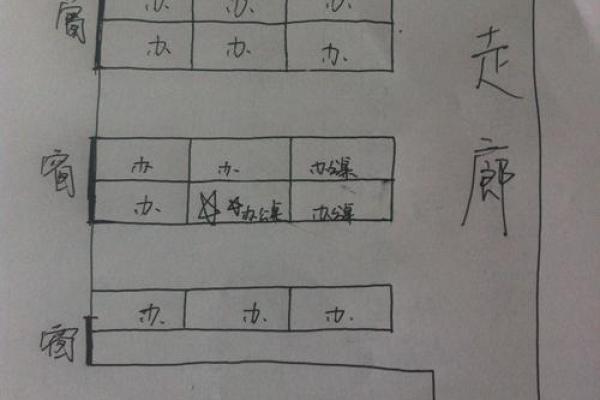 办 办 办
窗 办 办 办
走廊
窗 办 办 办公桌
办 办公桌 办公桌
办 办 办
窗